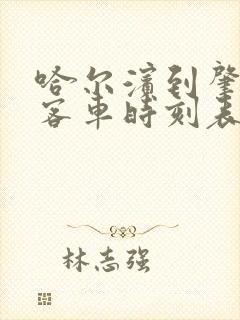 哈尔滨到肇
客车时刻表
林志强